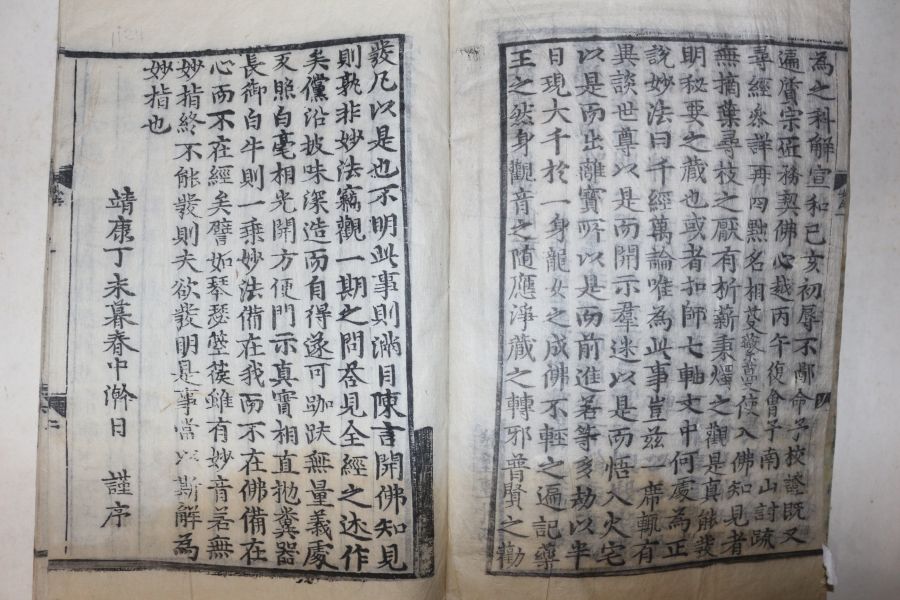 為之科解宣和己亥初辱不鄙命予校證既又
遍賡宗匠務契佛心越丙午復會予南山討疏
尋經叅詳再四點名相芟繁使入佛知見者
無摘葉尋枝之厭有析薪秉燭之觀是真能發
明秘要之藏也或者扣師七軸文中何處為正
說妙法曰千經萬論唯為此事豈玆一席輒有
異談世尊以是而開示羣迷以是而悟入火宅
以是而出離寶所以是而前進若等多劫以半
日現大千於一身龍女之成佛不輕之遍記藥
王之然身觀音之隨應淨藏之轉邪普賢之勸
發凡以是也不明此事則滿目陳言開佛知見
則孰非妙法竊觀一期之問荅見全經之述作
矣儻沿披味深造而自得遂可跏趺無量義處
炙照白毫相光開方便門示真實相直拋糞器
長御白牛則一乘妙法備在我而不在佛備在
心而不在經矣譬如琴瑟箜篌雖有妙音若無
妙指終不能發則夫欲發明是事當以斯解為
妙指也
靖康丁未暮春中澣日 謹序